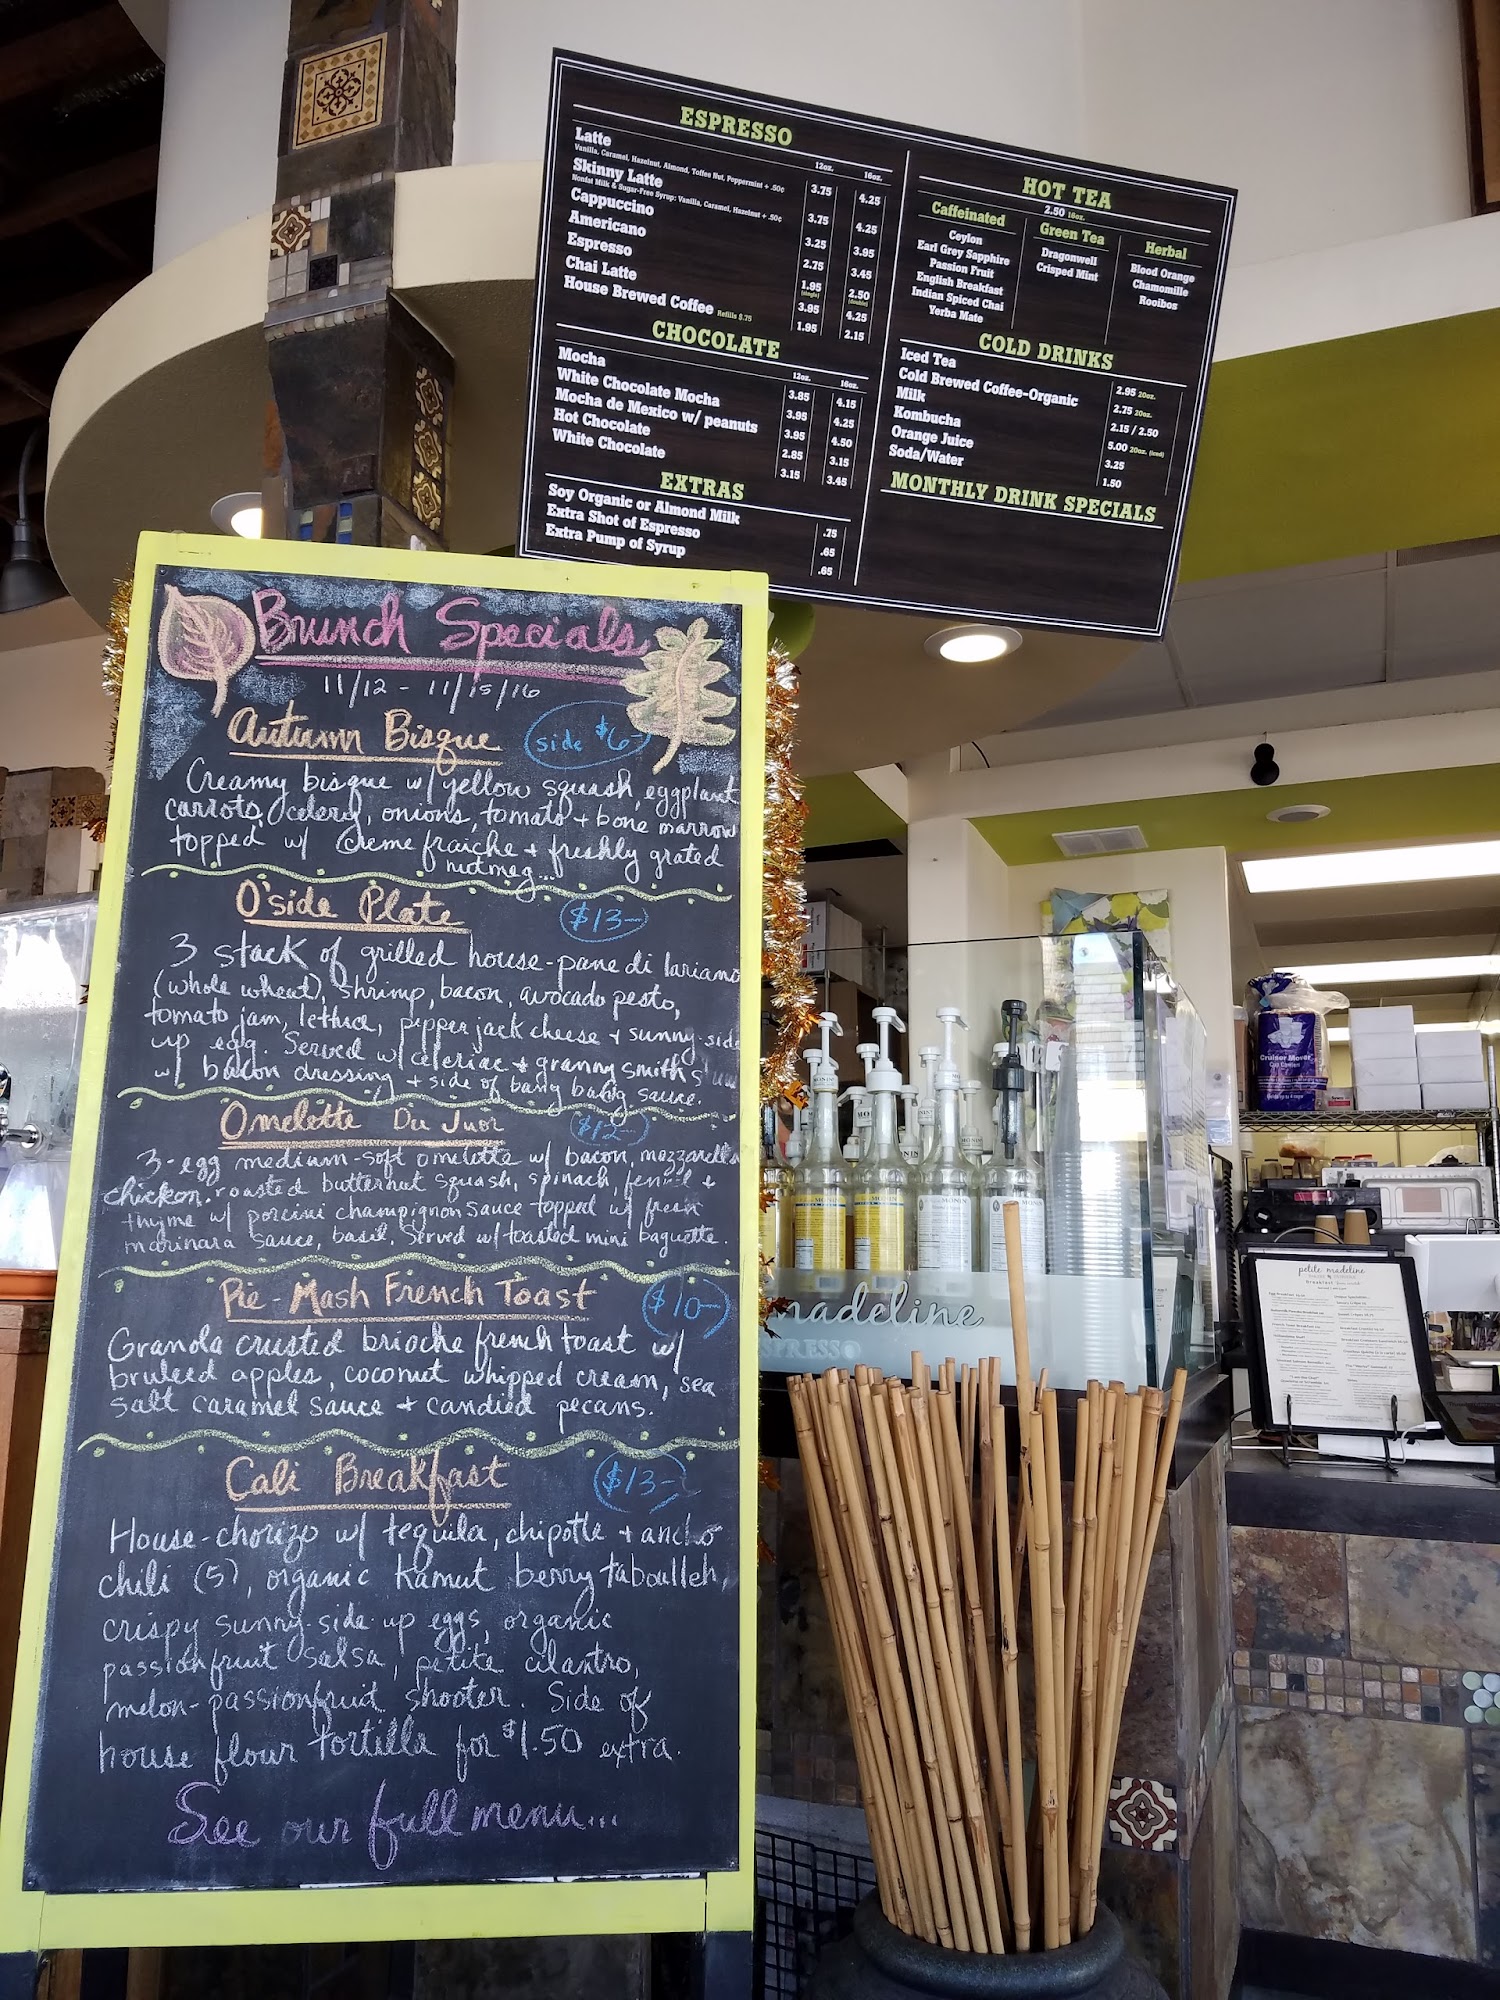 ESPRESSO
12oz. 16oz.
Latte 3.75 4.25
Vanilla, Caramel, Hazelnut, Almond, Toffee Nut, Peppermint + .50¢
Skinny Latte 3.75 4.25
Nonfat Milk & Sugar-Free Syrup: Vanilla, Caramel, Hazelnut + .50¢
Cappuccino 3.25 3.95
Americano 2.75 3.45
Espresso 1.95 (single) 2.50 (double)
Chai Latte 3.95 4.25
House Brewed Coffee Refills $.75 1.95 2.15
CHOCOLATE
12oz. 16oz.
Mocha 3.85 4.15
White Chocolate Mocha 3.95 4.25
Mocha de Mexico w/ peanuts 3.95 4.50
Hot Chocolate 2.85 3.15
White Chocolate 3.15 3.45
EXTRAS
Soy Organic or Almond Milk .75
Extra Shot of Espresso .65
Extra Pump of Syrup .65
HOT TEA
2.50 16oz.
Caffeinated
Ceylon
Earl Grey Sapphire
Passion Fruit
English Breakfast
Indian Spiced Chai
Yerba Mate
Green Tea
Dragonwell
Crisped Mint
Herbal
Blood Orange
Chamomille
Rooibos
COLD DRINKS
Iced Tea 2.95 20oz.
Cold Brewed Coffee-Organic 2.75 20oz.
Milk 2.15 / 2.50
Kombucha 5.00 20oz. (iced)
Orange Juice 3.25
Soda/Water 1.50
MONTHLY DRINK SPECIALS
Brunch Specials
11/12 - 11/15/16
Autumn Bisque side $6-
Creamy bisque w/ yellow squash, eggplant
carrots, celery, onions, tomato + bone marrow
topped w/ creme fraiche + freshly grated
nutmeg...
O'side Plate $13-
3 stack of grilled house-pane di lariano
(whole wheat), shrimp, bacon, avocado pesto,
tomato jam, lettuce, pepper jack cheese + sunny-side
up egg. Served w/ celeriac + granny smith slaw
w/ bacon dressing + side of bang bang sauce.
Omelette Du Juor $12-
3-egg medium-soft omelette w/ bacon, mozzarella
chicken, roasted butternut squash, spinach, fennel +
thyme w/ porcini champignon sauce topped w/ fresh
marinara sauce, basil. Served w/ toasted mini baguette.
Pie-Mash French Toast $10-
Granola crusted brioche french toast w/
bruleed apples, coconut whipped cream, sea
salt caramel sauce + candied pecans.
Cali Breakfast $13-
House-chorizo w/ tequila, chipotle + ancho
chili (5), organic Kamut berry taboulleh,
crispy sunny-side up eggs, organic
passionfruit salsa, petite cilantro,
melon-passionfruit shooter. Side of
house flour tortilla for $1.50 extra.
See our full menu...
madeline
ESPRESSO
MONIN
Cruiser Mover
petite madeline